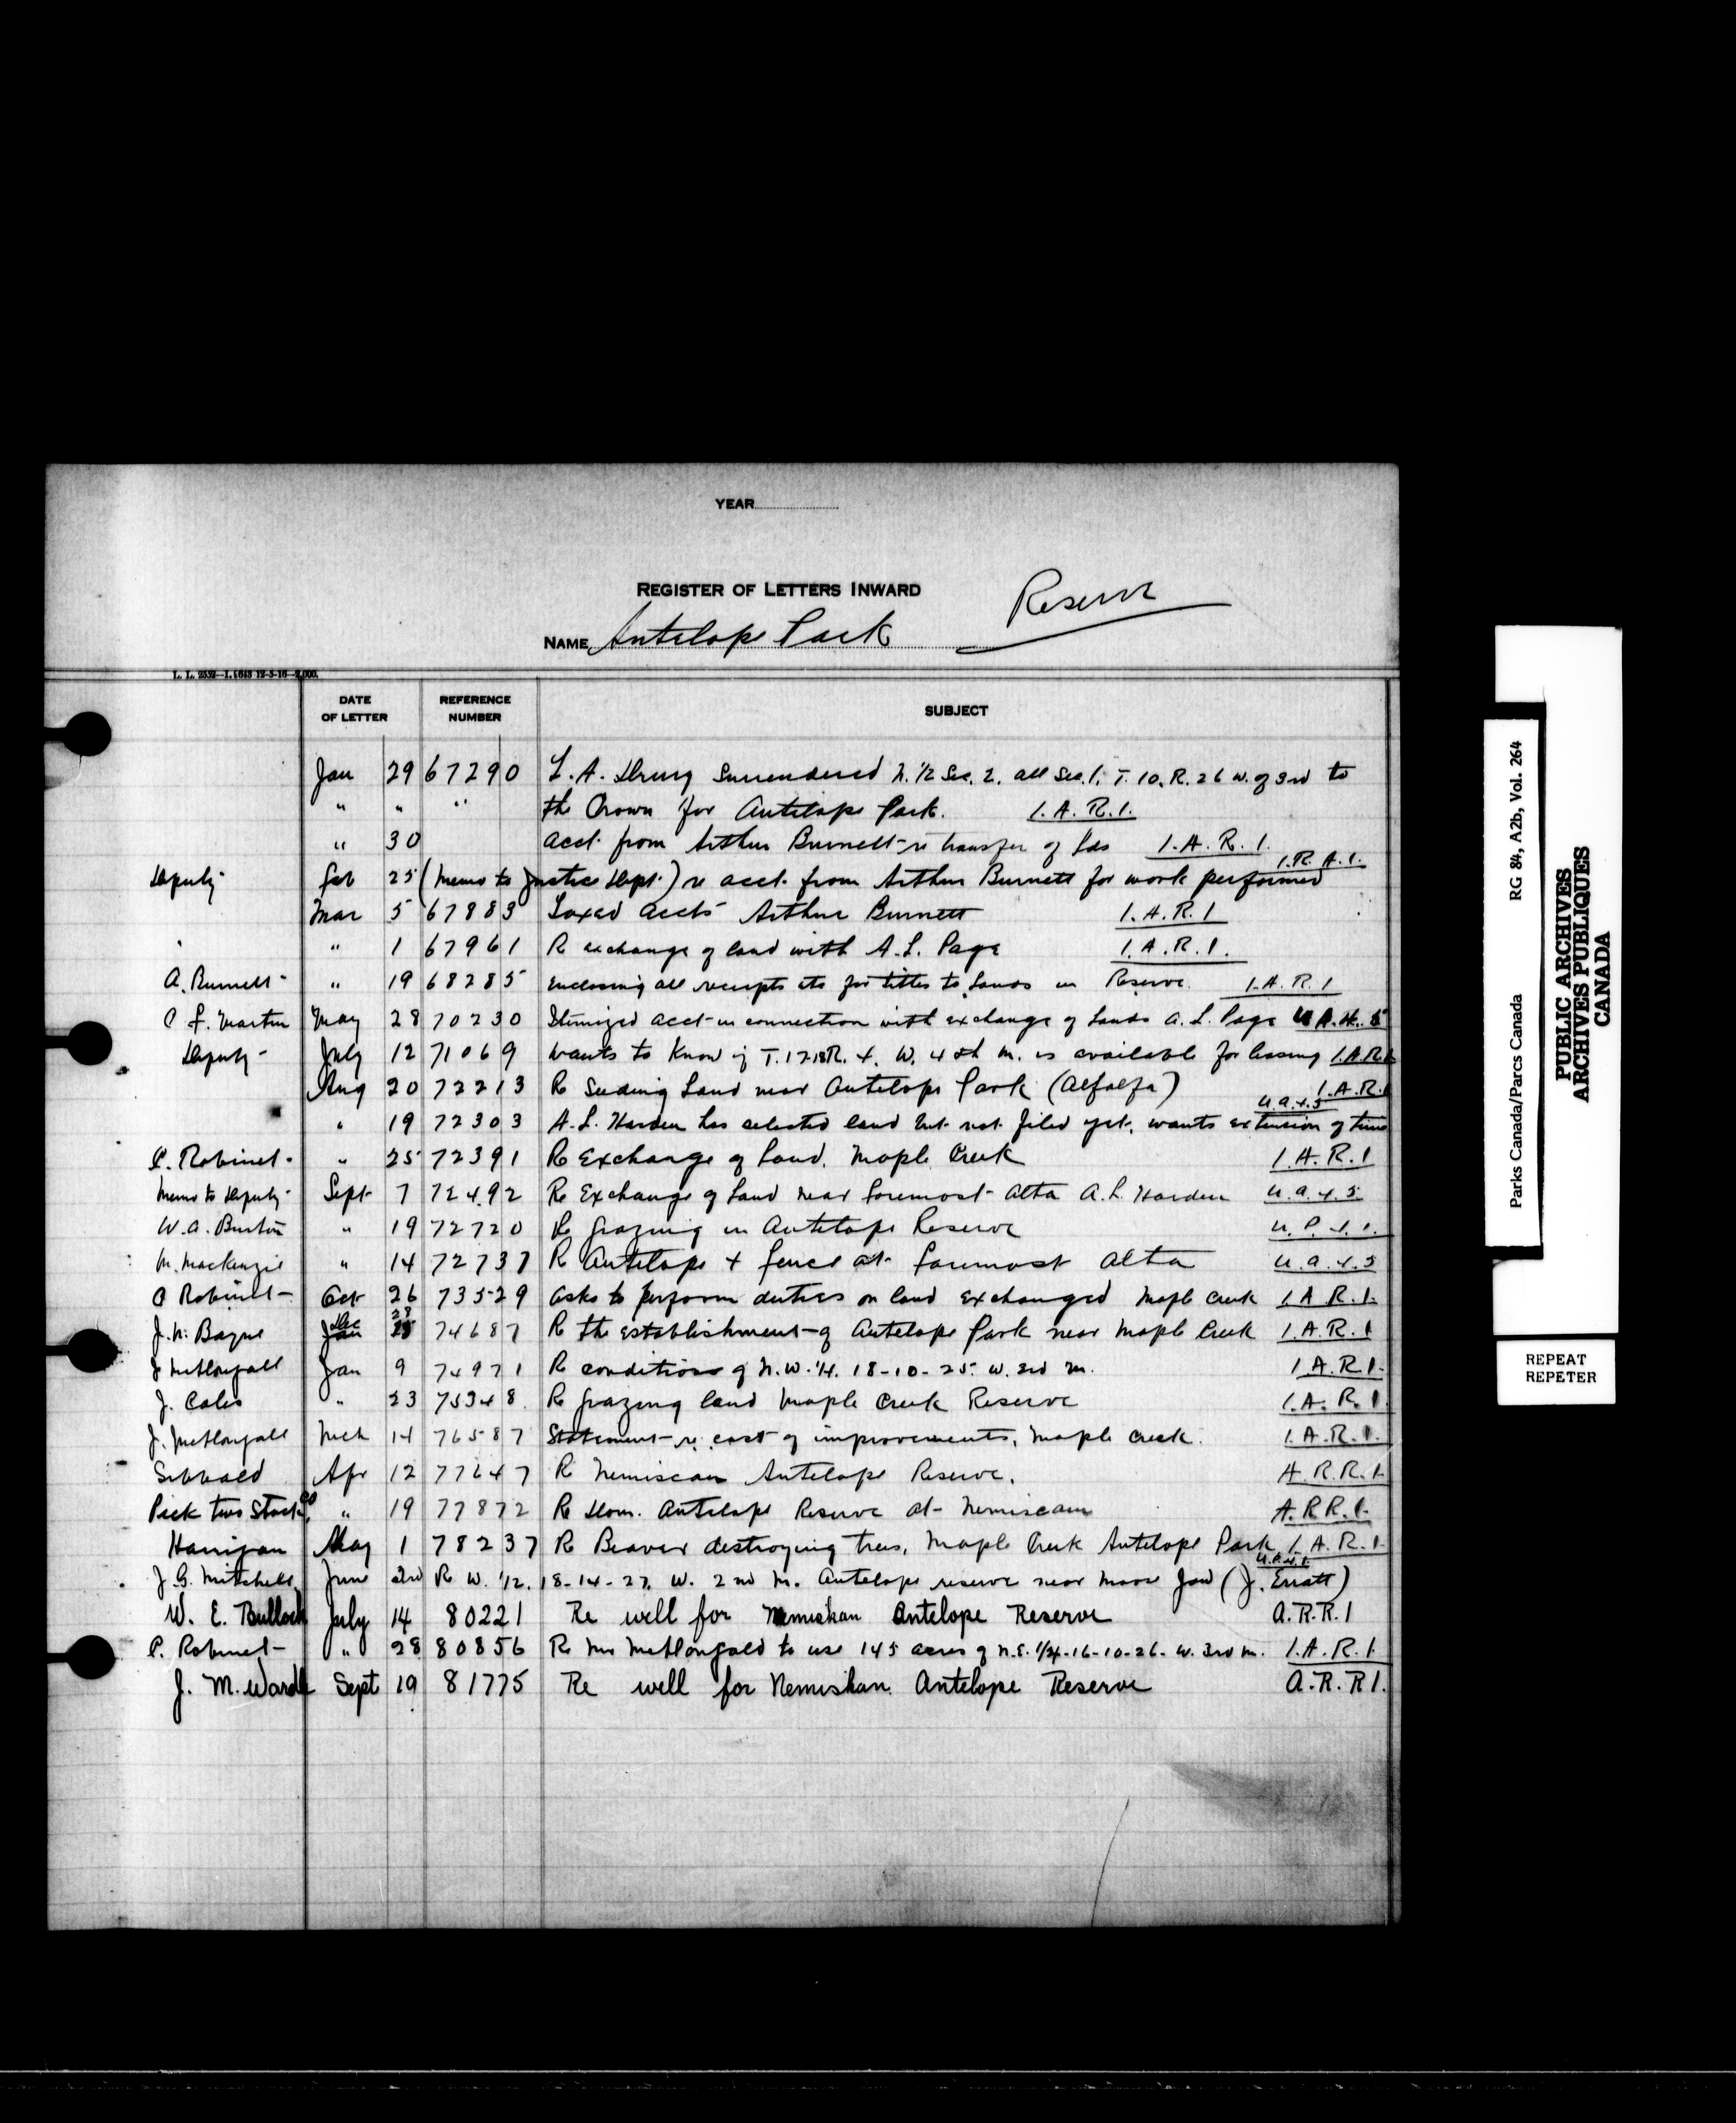 YEAR
REGISTER OF LETTERS INWARD
Reserve
NAME Antelope Park
DATE OF LETTER REFERENCE NUMBER SUBJECT
Jan 29 67290 Surrendered N. 1/2 Sec. 2, all Sec. 1, T. 10, R. 26 W. of 3rd to
" " " the Crown for Antelope Park. I.A.R.I.
" 30 acct. from Arthur Burnett re transfer of lds I.A.R.I.
I.R.A.I.
Deputy Feb 25 (Memo to Justice Dept.) re acct. from Arthur Burnett for work performed
Mar 5 67883 Taxed accts Arthur Burnett I.A.R.I
" 1 67961 R exchange of land with A.L. Page I.A.R.I.
A. Burnett " 19 68285 enclosing all receipts etc for titles to Lands in Reserve. I.A.R.I
Martin May 28 70230 Itemized acct in connection with exchange of Lands A.L. Page
Deputy July 12 71069 wants to know if T. R. 4. W. 4th M. is available for leasing I.A.R.I
Aug 20 72213 Re Seeding Land near Antelope Park (Alfalfa) I.A.R.I
U.a.4.5
" 19 72303 A.L. Harden has selected land but not filed yet, wants extension of time
P. Robinet " 25 72391 Re Exchange of Land, Maple Creek I.A.R.I
Memo to Deputy Sept 7 72492 Re Exchange of Land near Foremost Alta A.L. Harden U.a.4.5
W.A. Burton " 19 72720 Re grazing in Antelope Reserve
M. Mackenzie " 14 72737 R Antelope + fence at Foremost Alta U.a.4.5
P Robinet Oct 26 73529 asks to perform duties on land exchanged Maple Creek I.A.R.I.
J.N. Bayne Dec 28 74687 R the establishment of Antelope Park near Maple Creek I.A.R.I
J McDougall Jan 9 74971 R conditions of N.W. 1/4. 18-10-25. W. 3rd M. I.A.R.I.
J. Coles " 23 75348 R grazing land Maple Creek Reserve I.A.R.I.
J. McDougall Mch 14 76587 Statement re cost of improvements, Maple Creek. I.A.R.I.
Sibbald Apr 12 77647 R Nemiscam Antelope Reserve. A.R.R.I.
Pick " 19 77872 R Dom. Antelope Reserve at Nemiscam A.R.R.I.
Hanigan May 1 78237 R Beaver destroying trees, Maple Creek Antelope Park I.A.R.I.
J.G. Mitchell June 2nd R W. 1/2. 18-14-27. W. 2nd M. Antelope reserve near Moose Jaw (J. Erratt)
W. E. Bullock July 14 80221 Re well for Nemiskan Antelope Reserve A.R.R.I
P. Robinet " 28 80856 R Mr McDougald to use 145 acres of N.E. 1/4-16-10-26- W. 3rd M. I.A.R.I.
J. M. Wardle Sept 19 81775 Re well for Nemiskan. Antelope Reserve A.R.R.I.
RG 84, A2b, Vol. 264
Parks Canada/Parcs Canada
PUBLIC ARCHIVES
ARCHIVES PUBLIQUES
CANADA
REPEAT
REPETER